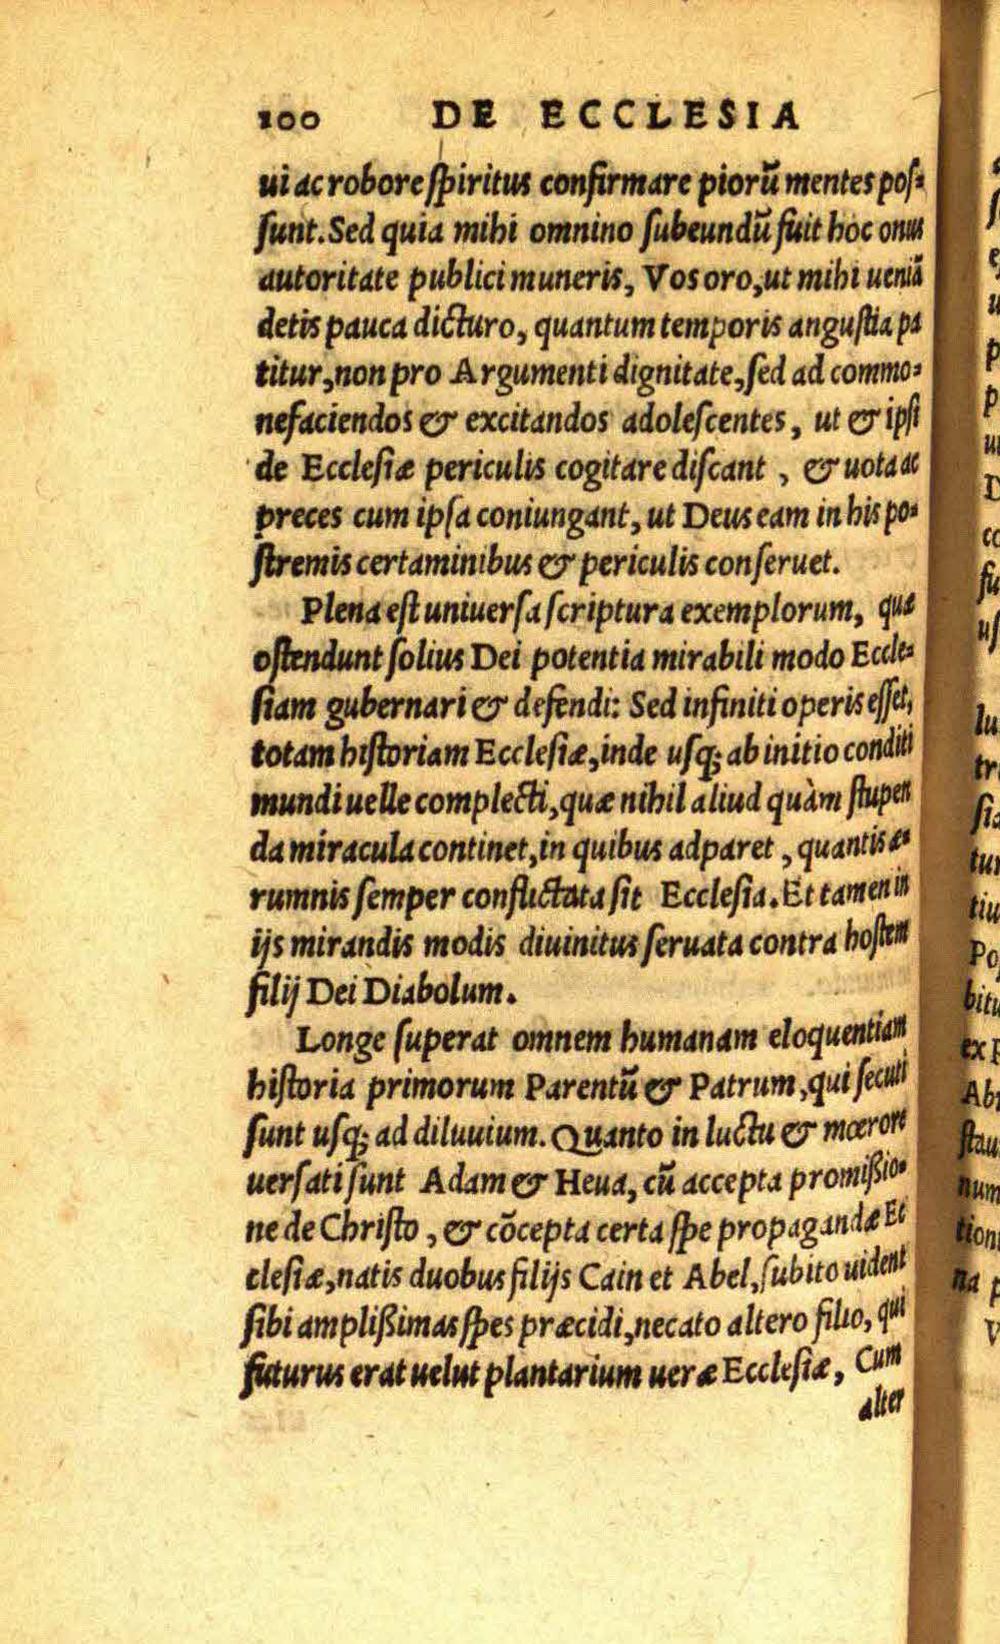 100 DE ECCLESIA
ui ac robore ſpiritus confirmare piorū mentes poſ⸗
ſunt. Sed quia mihi omnino ſubeundū fuit hoc onus
autoritate publici muneris, Vos oro, ut mihi ueniā
detis pauca dicturo, quantum temporis anguſtia pa
titur, non pro Argumenti dignitate, ſed ad commo⸗
nefaciendos & excitandos adoleſcentes, ut & ipſi
de Eccleſiæ periculis cogitare diſcant, & uota ac
preces cum ipſa coniungant, ut Deus eam in his po⸗
ſtremis certaminibus & periculis conſeruet.
Plena eſt uniuerſa ſcriptura exemplorum, quæ
oſtendunt ſolius Dei potentia mirabili modo Eccle⸗
ſiam gubernari & defendi: Sed infiniti operis eſſet,
totam hiſtoriam Eccleſiæ, inde uſq; ab initio conditi
mundi uelle complecti, quæ nihil aliud quàm ſtupen
da miracula continet, in quibus adparet, quantis æ⸗
rumnis ſemper conflictata ſit Eccleſia. Et tamen in
ijs mirandis modis diuinitus ſeruata contra hoſtem
filij Dei Diabolum.
Longe ſuperat omnem humanam eloquentiam
hiſtoria primorum Parentū & Patrum, qui ſecuti
ſunt uſq; ad diluuium. Quanto in luctu & mœrore
uerſati ſunt Adam & Heua, cū accepta promißio⸗
ne de Chriſto, & cōcepta certa ſpe propagandæ Ec
cleſiæ, natis duobus filijs Cain et Abel, ſubito uident
ſibi amplißimas ſpes præcidi, necato altero filio, qui
futurus erat uelut plantarium ueræ Eccleſiæ, Cum
alter